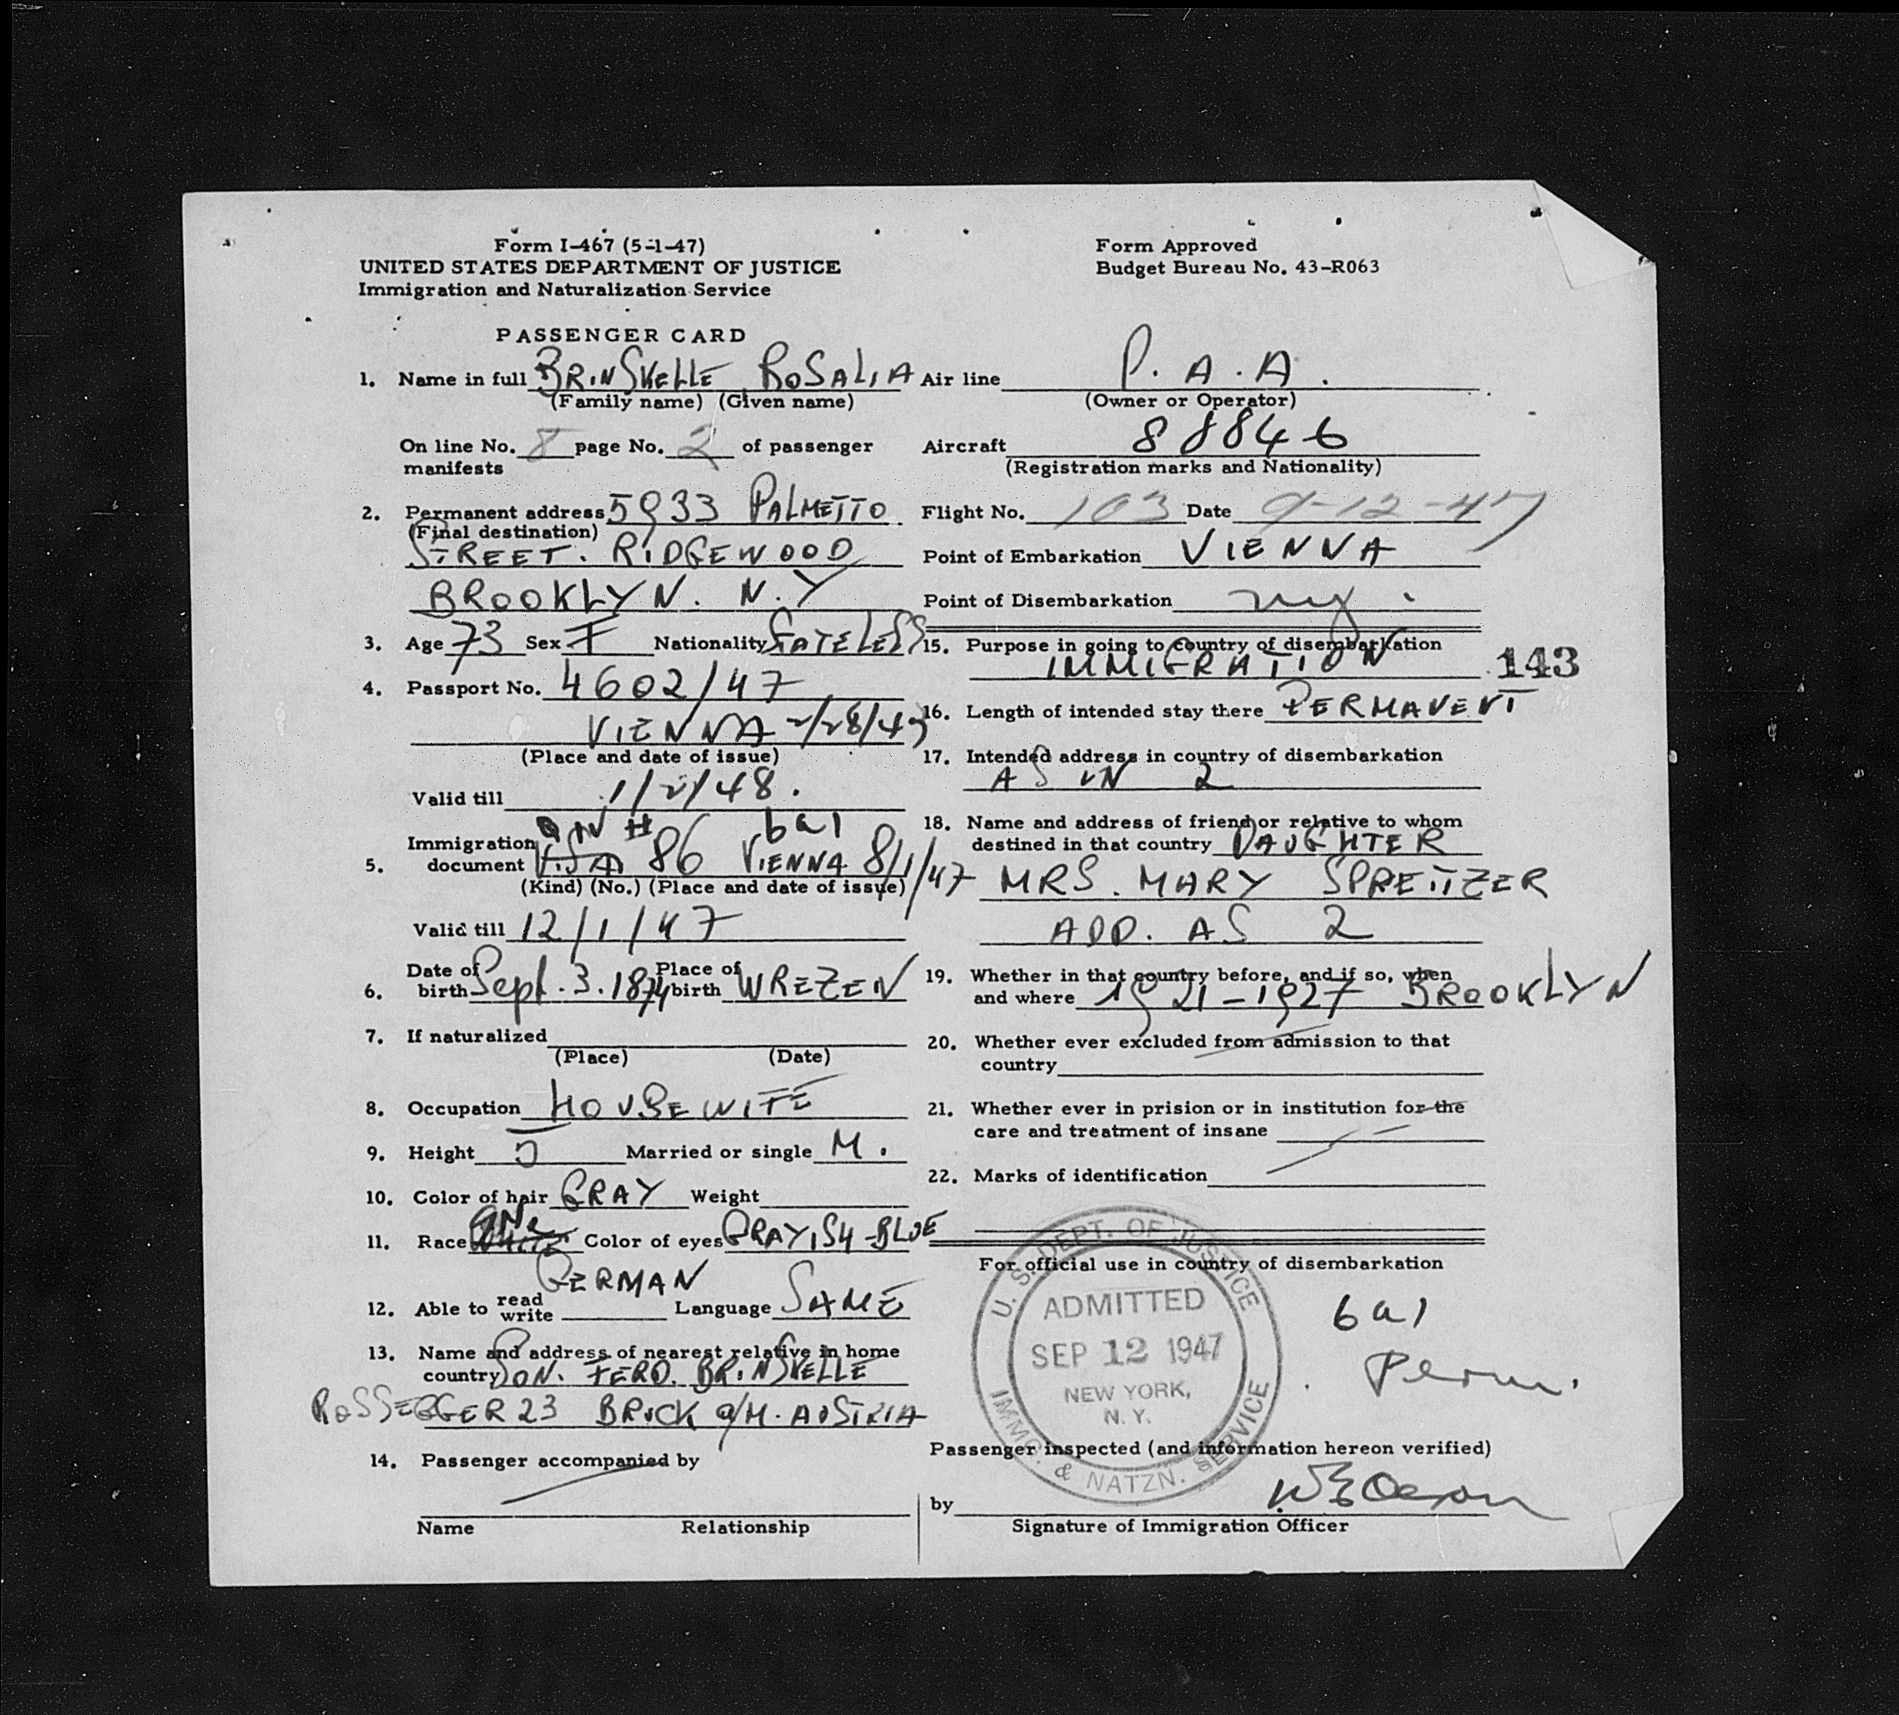 Form I-467 (5-1-47)
UNITED STATES DEPARTMENT OF JUSTICE
Immigration and Naturalization Service
Form Approved
Budget Bureau No. 43-R063
PASSENGER CARD
1. Name in full BRINSKELLE ROSALIA
(Family name) (Given name)
On line No. 8 page No. 2 of passenger
manifests
2. Permanent address 5933 PALMETTO
(Final destination)
STREET. RIDGEWOOD
BROOKLYN. N.Y
3. Age 73 Sex F Nationality STATELESS
4. Passport No. 4602/47
VIENNA 2/28/47
(Place and date of issue)
Valid till 1/2/48.
QIV # 6a1
5. Immigration document VISA 86 VIENNA 8/1/47
(Kind) (No.) (Place and date of issue)
Valid till 12/1/47
6. Date of birth Sept. 3. 1874 Place of birth WREZEN
7. If naturalized
(Place) (Date)
8. Occupation HOUSEWIFE
9. Height 5 Married or single M.
10. Color of hair GRAY Weight
11. Race WHITE Color of eyes GRAYISH-BLUE
GERMAN
12. Able to read write Language SAME
13. Name and address of nearest relative in home
country SON. FERD. BRINSKELLE
ROSSEGGER 23 BRUCK a/M. AUSTRIA
14. Passenger accompanied by
Name Relationship
Air line P.A.A.
(Owner or Operator)
Aircraft 88846
(Registration marks and Nationality)
Flight No. 103 Date 9-12-47
Point of Embarkation VIENNA
Point of Disembarkation ny.
15. Purpose in going to country of disembarkation
IMMIGRATION
143
16. Length of intended stay there PERMANENT
17. Intended address in country of disembarkation
AS IN 2
18. Name and address of friend or relative to whom
destined in that country DAUGHTER
MRS. MARY SPREITZER
ADD. AS 2
19. Whether in that country before, and if so, when
and where 1921-1927 BROOKLYN
20. Whether ever excluded from admission to that
country
21. Whether ever in prision or in institution for the
care and treatment of insane
22. Marks of identification
For official use in country of disembarkation
U. S. DEPT. OF JUSTICE
ADMITTED
SEP 12 1947
NEW YORK,
N. Y.
IMMG. & NATZN. SERVICE
6a1
Perm.
Passenger inspected (and information hereon verified)
by
Signature of Immigration Officer